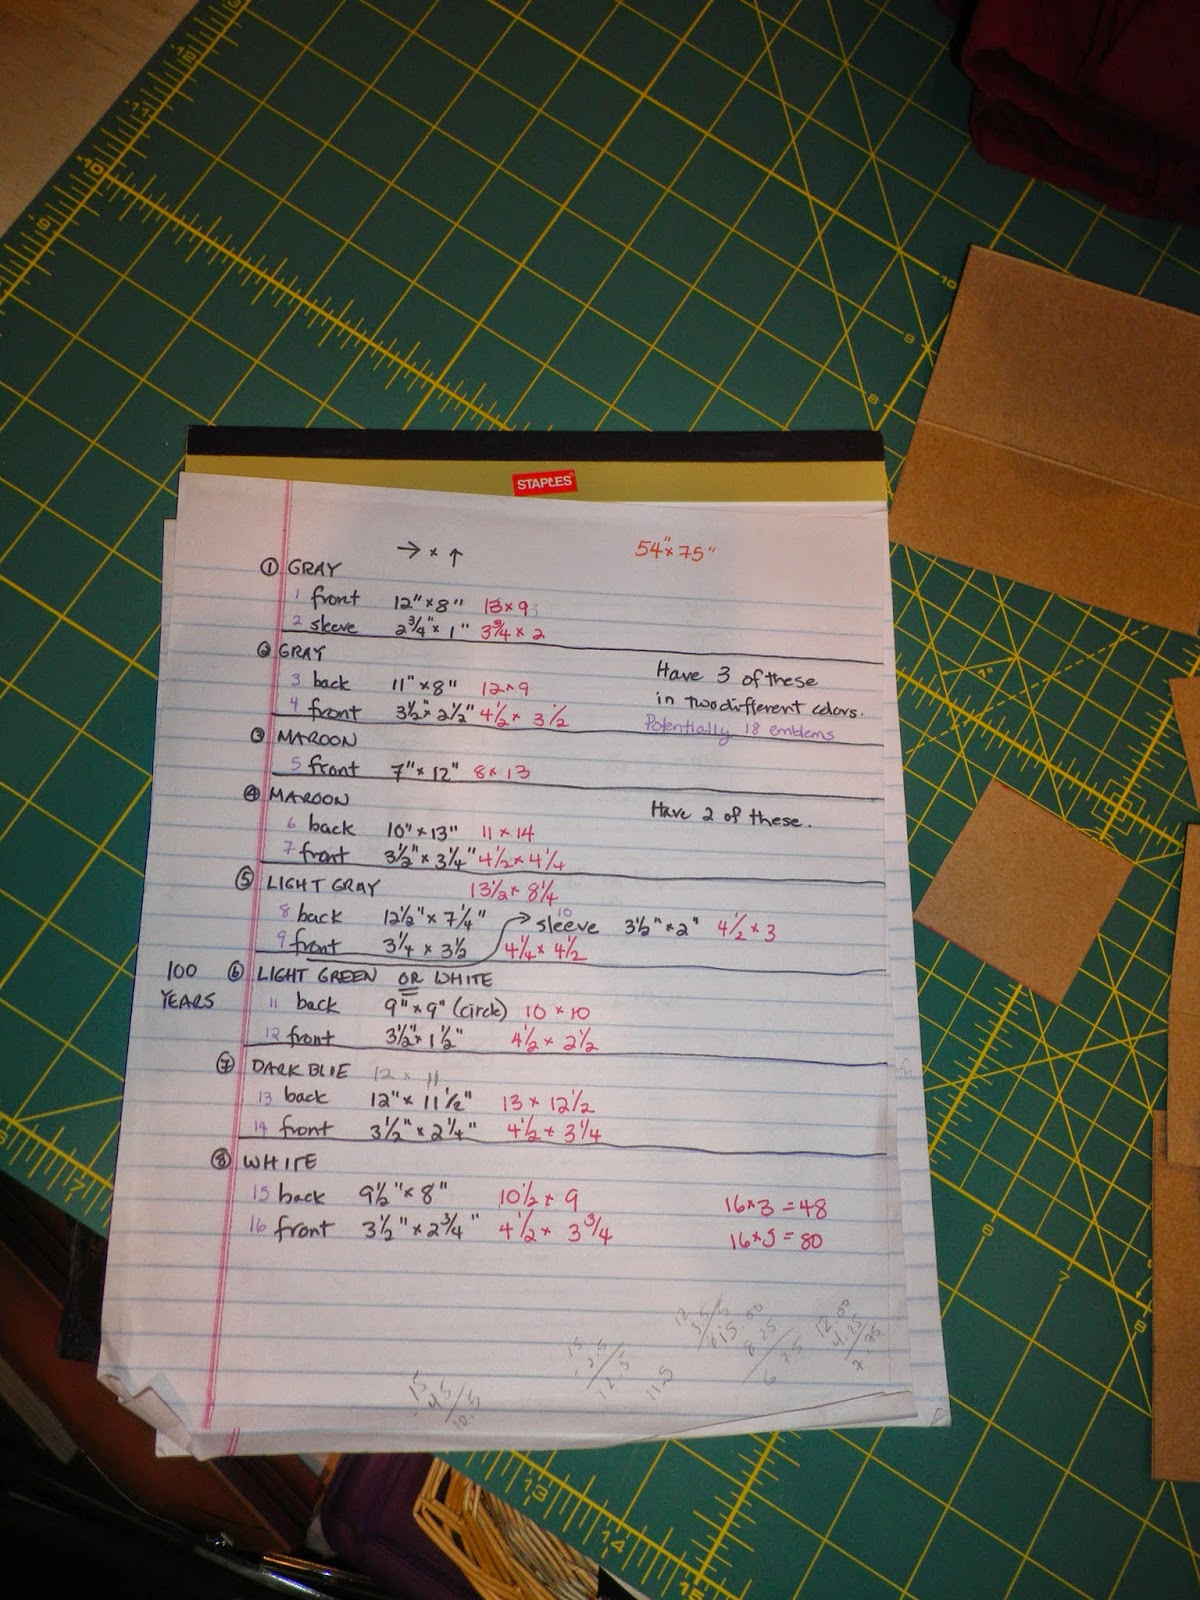 STAPLES
→ × ↑ 54" × 75"
① GRAY
1 front 12" × 8" 13 × 9
2 sleeve 2 3/4" × 1" 3 3/4 × 2
② GRAY
3 back 11" × 8" 12 × 9
4 front 3 1/2" × 2 1/2" 4 1/2 × 3 1/2
Have 3 of these
in two different colors.
Potentially 18 emblems
③ MAROON
5 front 7" × 12" 8 × 13
④ MAROON
Have 2 of these.
6 back 10" × 13" 11 × 14
7 front 3 1/2" × 3 1/4" 4 1/2 × 4 1/4
⑤ LIGHT GRAY 13 1/2 × 8 1/4
8 back 12 1/2" × 7 1/4" → 10 sleeve 3 1/2" × 2" 4 1/2 × 3
9 front 3 1/4 × 3 1/2 4 1/4 × 4 1/2
100 YEARS
⑥ LIGHT GREEN OR WHITE
11 back 9" × 9" (circle) 10 × 10
12 front 3 1/2" × 1 1/2" 4 1/2 × 2 1/2
⑦ DARK BLUE 12 × 11
13 back 12" × 11 1/2" 13 × 12 1/2
14 front 3 1/2" × 2 1/4" 4 1/2 × 3 1/4
⑧ WHITE
15 back 9 1/2" × 8" 10 1/2 × 9
16 front 3 1/2" × 2 3/4" 4 1/2 × 3 3/4
16 × 3 = 48
16 × 5 = 80
15
4.5
10.5
15
2.5
12.5
11.5
10
9
8
10
9
8
6
7
8
13
14
15
7
1"